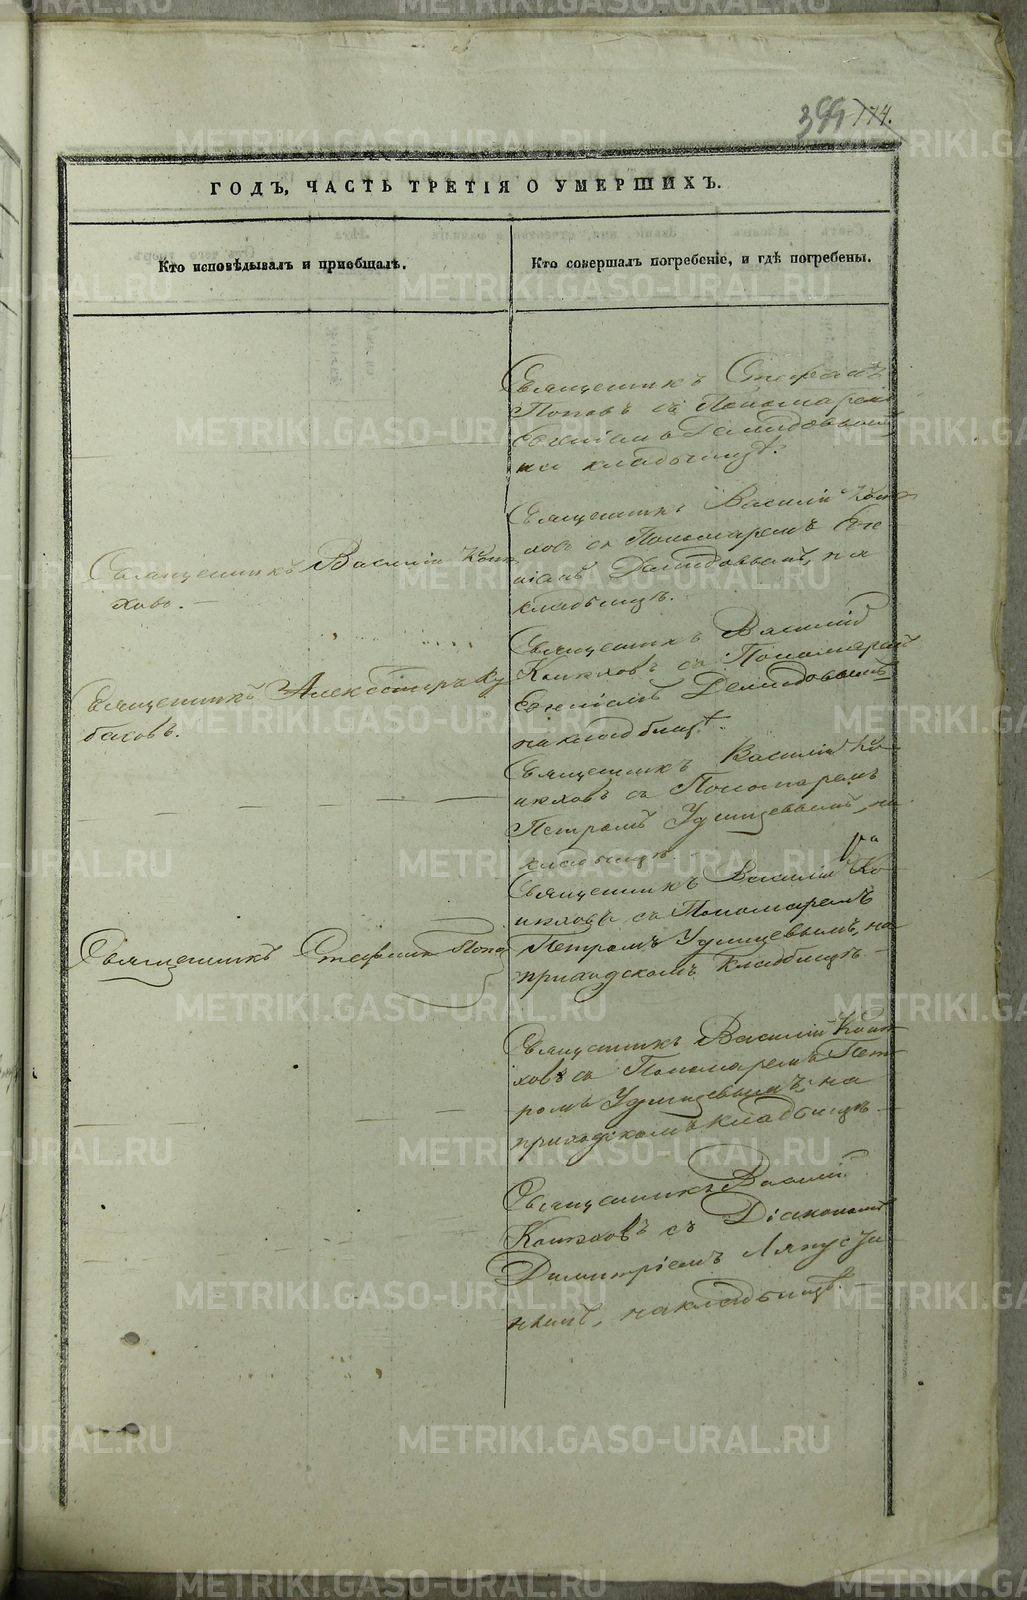 174.
ГОДЪ, ЧАСТЬ ТРЕТІЯ О УМЕРШИХЪ.
Кто исповѣдывалъ и пріобщалъ.
Кто совершалъ погребеніе, и гдѣ погребены.
Священникъ Стефанъ
Поповъ съ Пономаремъ
Демидовымъ
на кладбищѣ.
Священникъ Василій
съ Пономаремъ Евге
ніемъ Демидовымъ, на
кладбищѣ.
Священникъ Василій
ховъ.
Священникъ Василій
съ Пономаремъ
Евгеніемъ Демидовымъ
на кладбищѣ.
Священникъ Александръ Ку
басовъ.
Священникъ Василій
съ Пономаремъ
Петромъ Удинцевымъ, на
кладбищѣ.
Священникъ Василій
съ Пономаремъ
Петромъ Удинцевымъ, на
приходскомъ кладбищѣ.
Священникъ Стефанъ Попов
Священникъ Василій
ховъ съ Пономаремъ Пет
ромъ Удинцевымъ на
приходскомъ кладбищѣ.
Священникъ Василій
съ Діакономъ
Димитріемъ Ляпусти
нымъ, на кладбищѣ.
METRIKI.GASO-URAL.RU